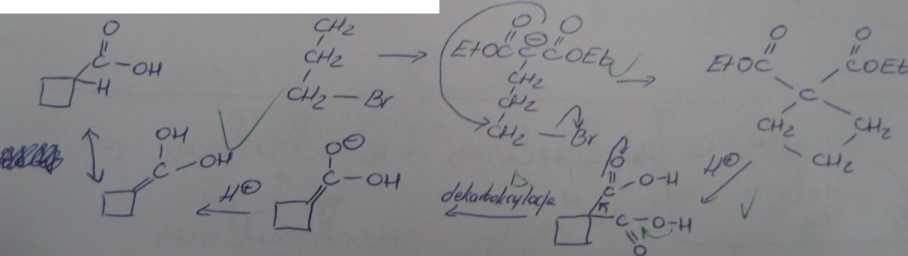 O
C
OH
H
CH2
CH2
CH2 — Br
O O
EtOC C COEt
⊖
CH2
CH2
CH2 — Br
O O
EtOC COEt
C
CH2 CH2
CH2
H⊕
OH
C
OH
H⊕
O⊖
C — OH
dekarboksylacja
O
C O-H
C-O-H
O